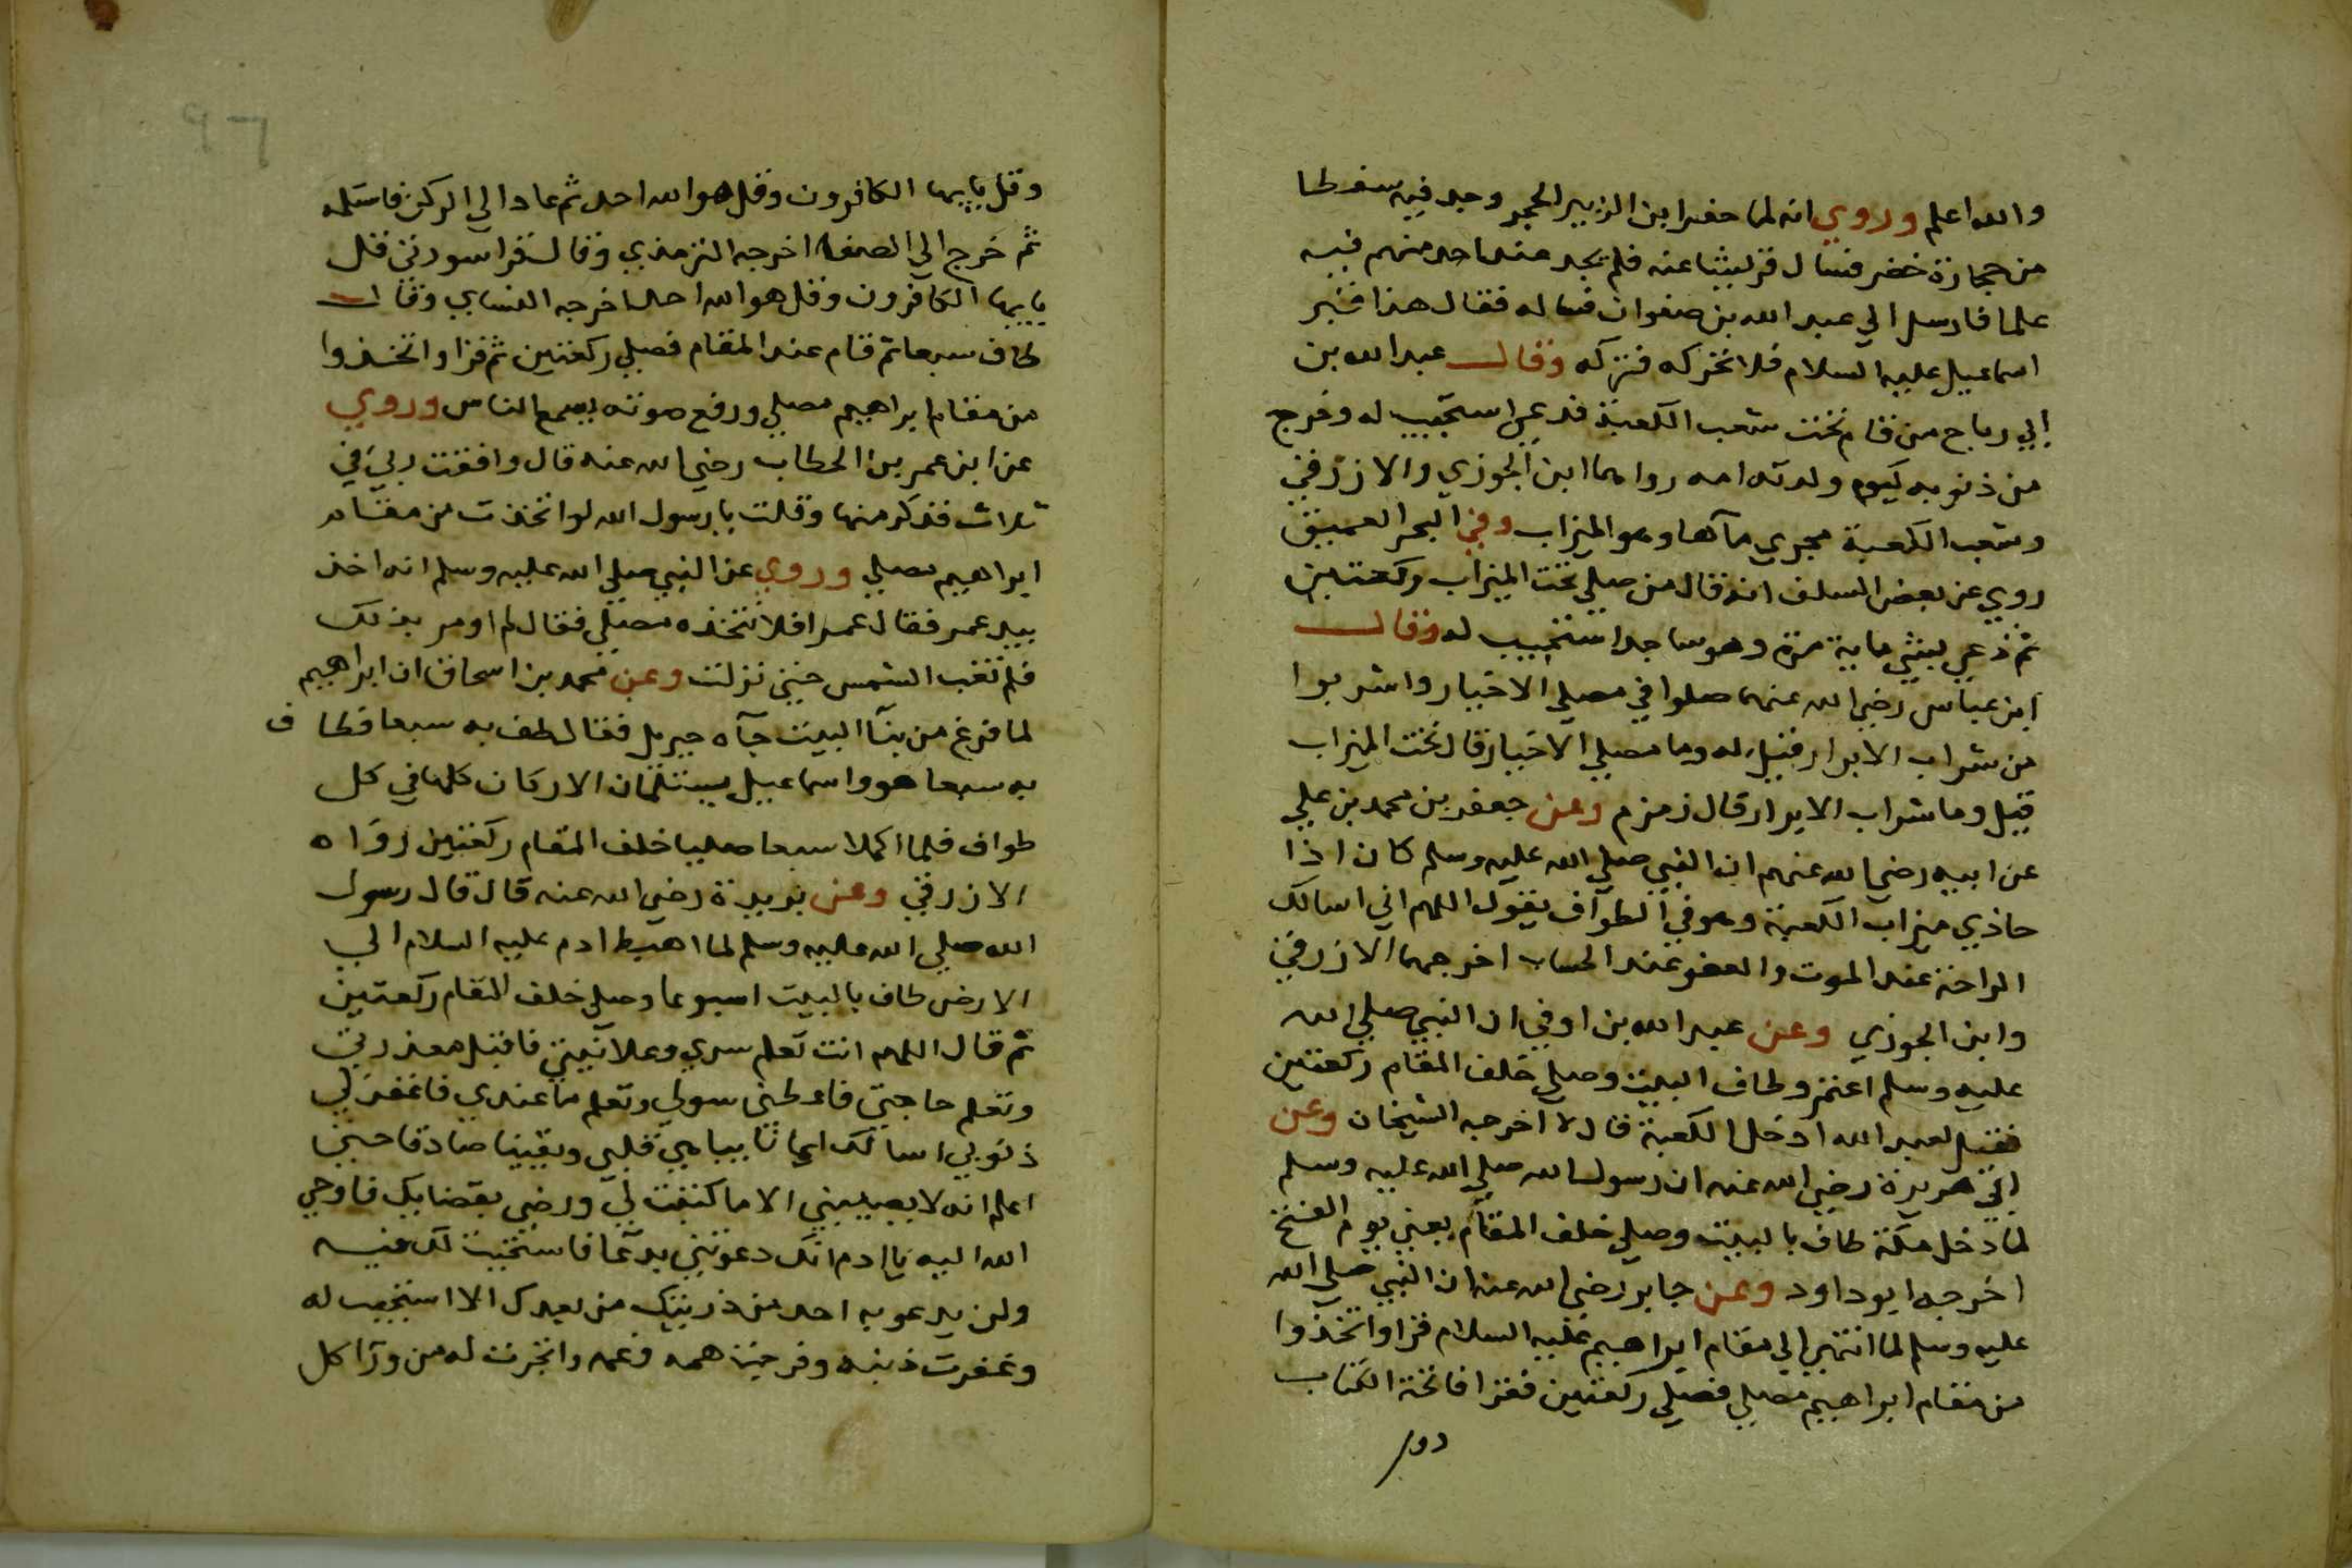 والله اعلم وروي انه لما حفر ابن الزبير الحجر وجد فيه سفطا
من حجارة خضر فسال قريشا عنه فلم يجد عند احد منهم فيه
علما فارسل الي عبد الله بن صفوان فساله فقال هذا قبر
اسماعيل عليه السلام فلا تحركه فتركه وقال عبد الله بن
ابي رباح من قام تحت شعب الكعبة فدعي استجيب له وخرج
من ذنوبه كيوم ولدته امه رواهما ابن الجوزي والازرقي
وشعب الكعبة مجري مآها وهو الميزاب وفي البحر العميق
روي عن بعض السلف انه قال من صلي تحت الميزاب ركعتين
ثم دعي بشي ماية مرة وهو ساجد استجيب له وقال
ابن عباس رضي الله عنهما صلوا في مصلي الاخيار واشربوا
من شراب الابرار فقيل له وما مصلي الاخيار قال تحت الميزاب
قيل وما شراب الابرار قال زمزم وعن جعفر بن محمد بن علي
عن ابيه رضي الله عنهم ان النبي صلي الله عليه وسلم كان اذا
حاذي ميزاب الكعبة وهو في الطواف يقول اللهم اني اسالك
الراحة عند الموت والعفو عند الحساب اخرجهما الازرقي
وابن الجوزي وعن عبد الله بن اوفي ان النبي صلي الله
عليه وسلم اعتمر وطاف البيت وصلي خلف المقام ركعتين
فقيل لعبد الله ادخل الكعبة قال لا اخرجه الشيخان وعن
ابي هريرة رضي الله عنه ان رسول الله صلي الله عليه وسلم
لما دخل مكة طاف بالبيت وصلي خلف المقام يعني يوم الفتح
اخرجه ابوداود وعن جابر رضي الله عنه ان النبي صلي الله
عليه وسلم لما انتهي الي مقام ابراهيم عليه السلام قرا واتخذوا
من مقام ابراهيم مصلي فصلي ركعتين فقرا فاتحة الكتاب
وقل يايها الكافرون وقل هو الله احد ثم عاد الي الركن فاستلمه
ثم خرج الي الصفا اخرجه الترمذي وقال قرا سورتي قل
يايها الكافرون وقل هو الله احد اخرجه النساي وقال
طاف سبعا ثم قام عند المقام فصلي ركعتين ثم قرا واتخذوا
من مقام ابراهيم مصلي ورفع صوته يسمع الناس وروي
عن ابن عمر بن الخطاب رضي الله عنه قال وافقت ربي في
ثلاث فذكر منها وقلت يا رسول الله لو اتخذت من مقام
ابراهيم مصلي وروي عن النبي صلي الله عليه وسلم انه اخذ
بيد عمر فقال عمر افلا نتخذه مصلي فقال لم اومر بذلك
فلم تغب الشمس حتي نزلت وعن محمد بن اسحاق ان ابراهيم
لما فرغ من بنآ البيت جآه جبريل فقال طف به سبعا فطاف
به سبعا هو واسماعيل يستلمان الاركان كلها في كل
طواف فلما اكملا سبعا صليا خلف المقام ركعتين رواه
الازرقي وعن بريدة رضي الله عنه قال قال رسول
الله صلي الله عليه وسلم لما اهبط ادم عليه السلام الي
الارض طاف بالبيت اسبوعا وصلي خلف المقام ركعتين
ثم قال اللهم انت تعلم سري وعلانيتي فاقبل معذرتي
وتعلم حاجتي فاعطني سولي وتعلم ما عندي فاغفر لي
ذنوبي اسالك ايمانا يباهي قلبي ويقينا صادقا حتي
اعلم انه لا يصيبني الا ما كتبت لي ورضي بقضايك فاوحي
الله اليه يا ادم انك دعوتني بدعآ فاستجبت لك فيه
ولن يدعو به احد من ذريتك من بعدك الا استجيب له
وغفرت ذنبه وفرجت همه وغمه واتجرت له من ورآ كل